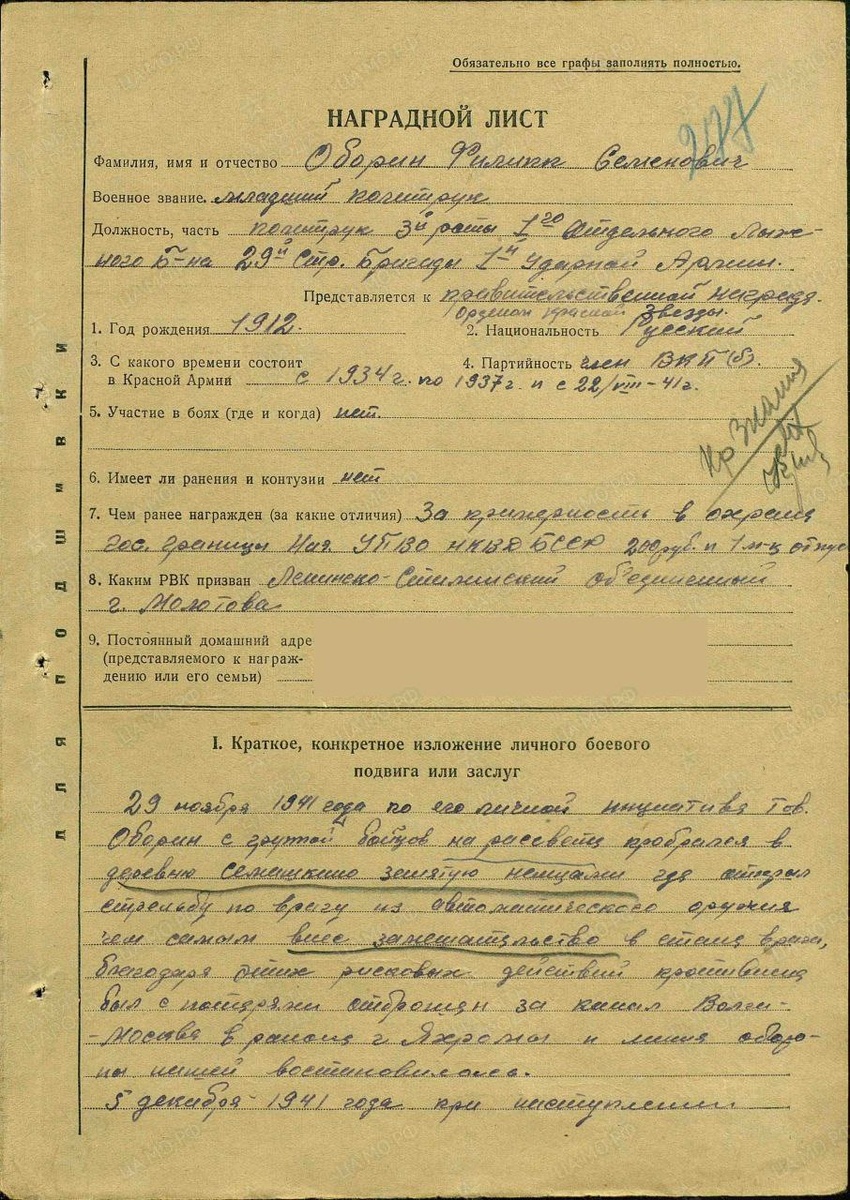 Обязательно все графы заполнять полностью.
277
НАГРАДНОЙ ЛИСТ
Фамилия, имя и отчество Оборин Филипп Семенович
Военное звание. младший политрук
Должность, часть политрук 3й роты 1го Отдельного Лыж-
ного Б-на 29й Стр. Бригады 1й Ударной Армии.
Представляется к правительственной награде.
Орденом Красной Звезды.
1. Год рождения 1912. 2. Национальность Русский
3. С какого времени состоит 4. Партийность член ВКП(б).
в Красной Армии с 1934 г. по 1937 г. и с 22/VIII-41 г.
5. Участие в боях (где и когда) нет.
Кр Знамя
6. Имеет ли ранения и контузии нет
7. Чем ранее награжден (за какие отличия) За примерность в охране
гос. границы Нач. УПВО НКВД БССР 200 руб. и 1 м-ц отпус
8. Каким РВК призван Ленинско-Сталинский об'единенный
г. Молотова
9. Постоянный домашний адре
(представляемого к награж-
дению или его семьи)
ДЛЯ ПОДШИВКИ
I. Краткое, конкретное изложение личного боевого
подвига или заслуг
29 ноября 1941 года по его личной инициативе Тов.
Оборин с группой бойцов на рассвете пробрался в
деревню Семашкино занятую немцами где открыл
стрельбу по врагу из автоматического оружия
чем самым внес замешательство в стане врага,
благодаря этих рисковых действий противник
был с потерями отброшен за канал Волга-
-Москва в районе г. Яхромы и линия оборо-
ны нашей востановилася.
5 декабря 1941 года при наступлении
ЦАМО.РФ